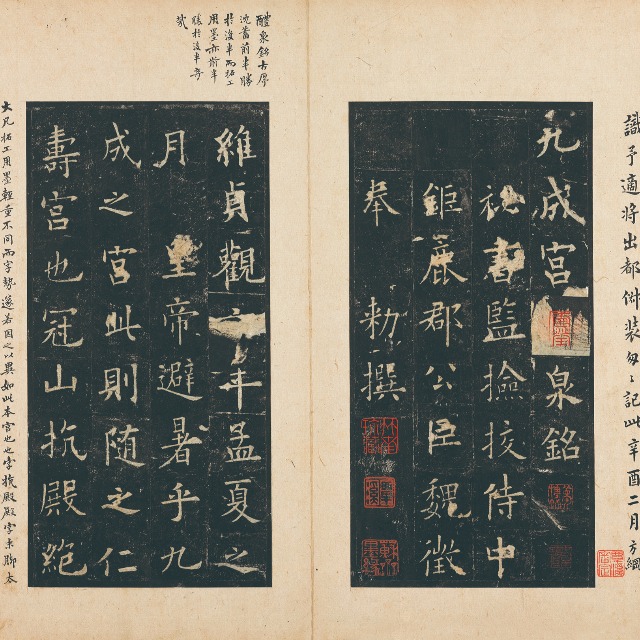 識予適將出都俶裝匆匆記此辛酉二月方綱
九成宮泉銘
秘書監撿挍侍中
鉅鹿郡公臣魏徵
奉 勅撰
醴泉銘古厚
沈蓄前半勝
於後半而拓工
用墨亦前半
勝於後半奇
哉
維貞觀六年孟夏之
月 皇帝避暑乎九
成之宮此則随之仁
壽宮也冠山抗殿絕
大凡拓工用墨輕重不同而字勢遂若因之以異如此本宮也也字抗殿殿字末脚太